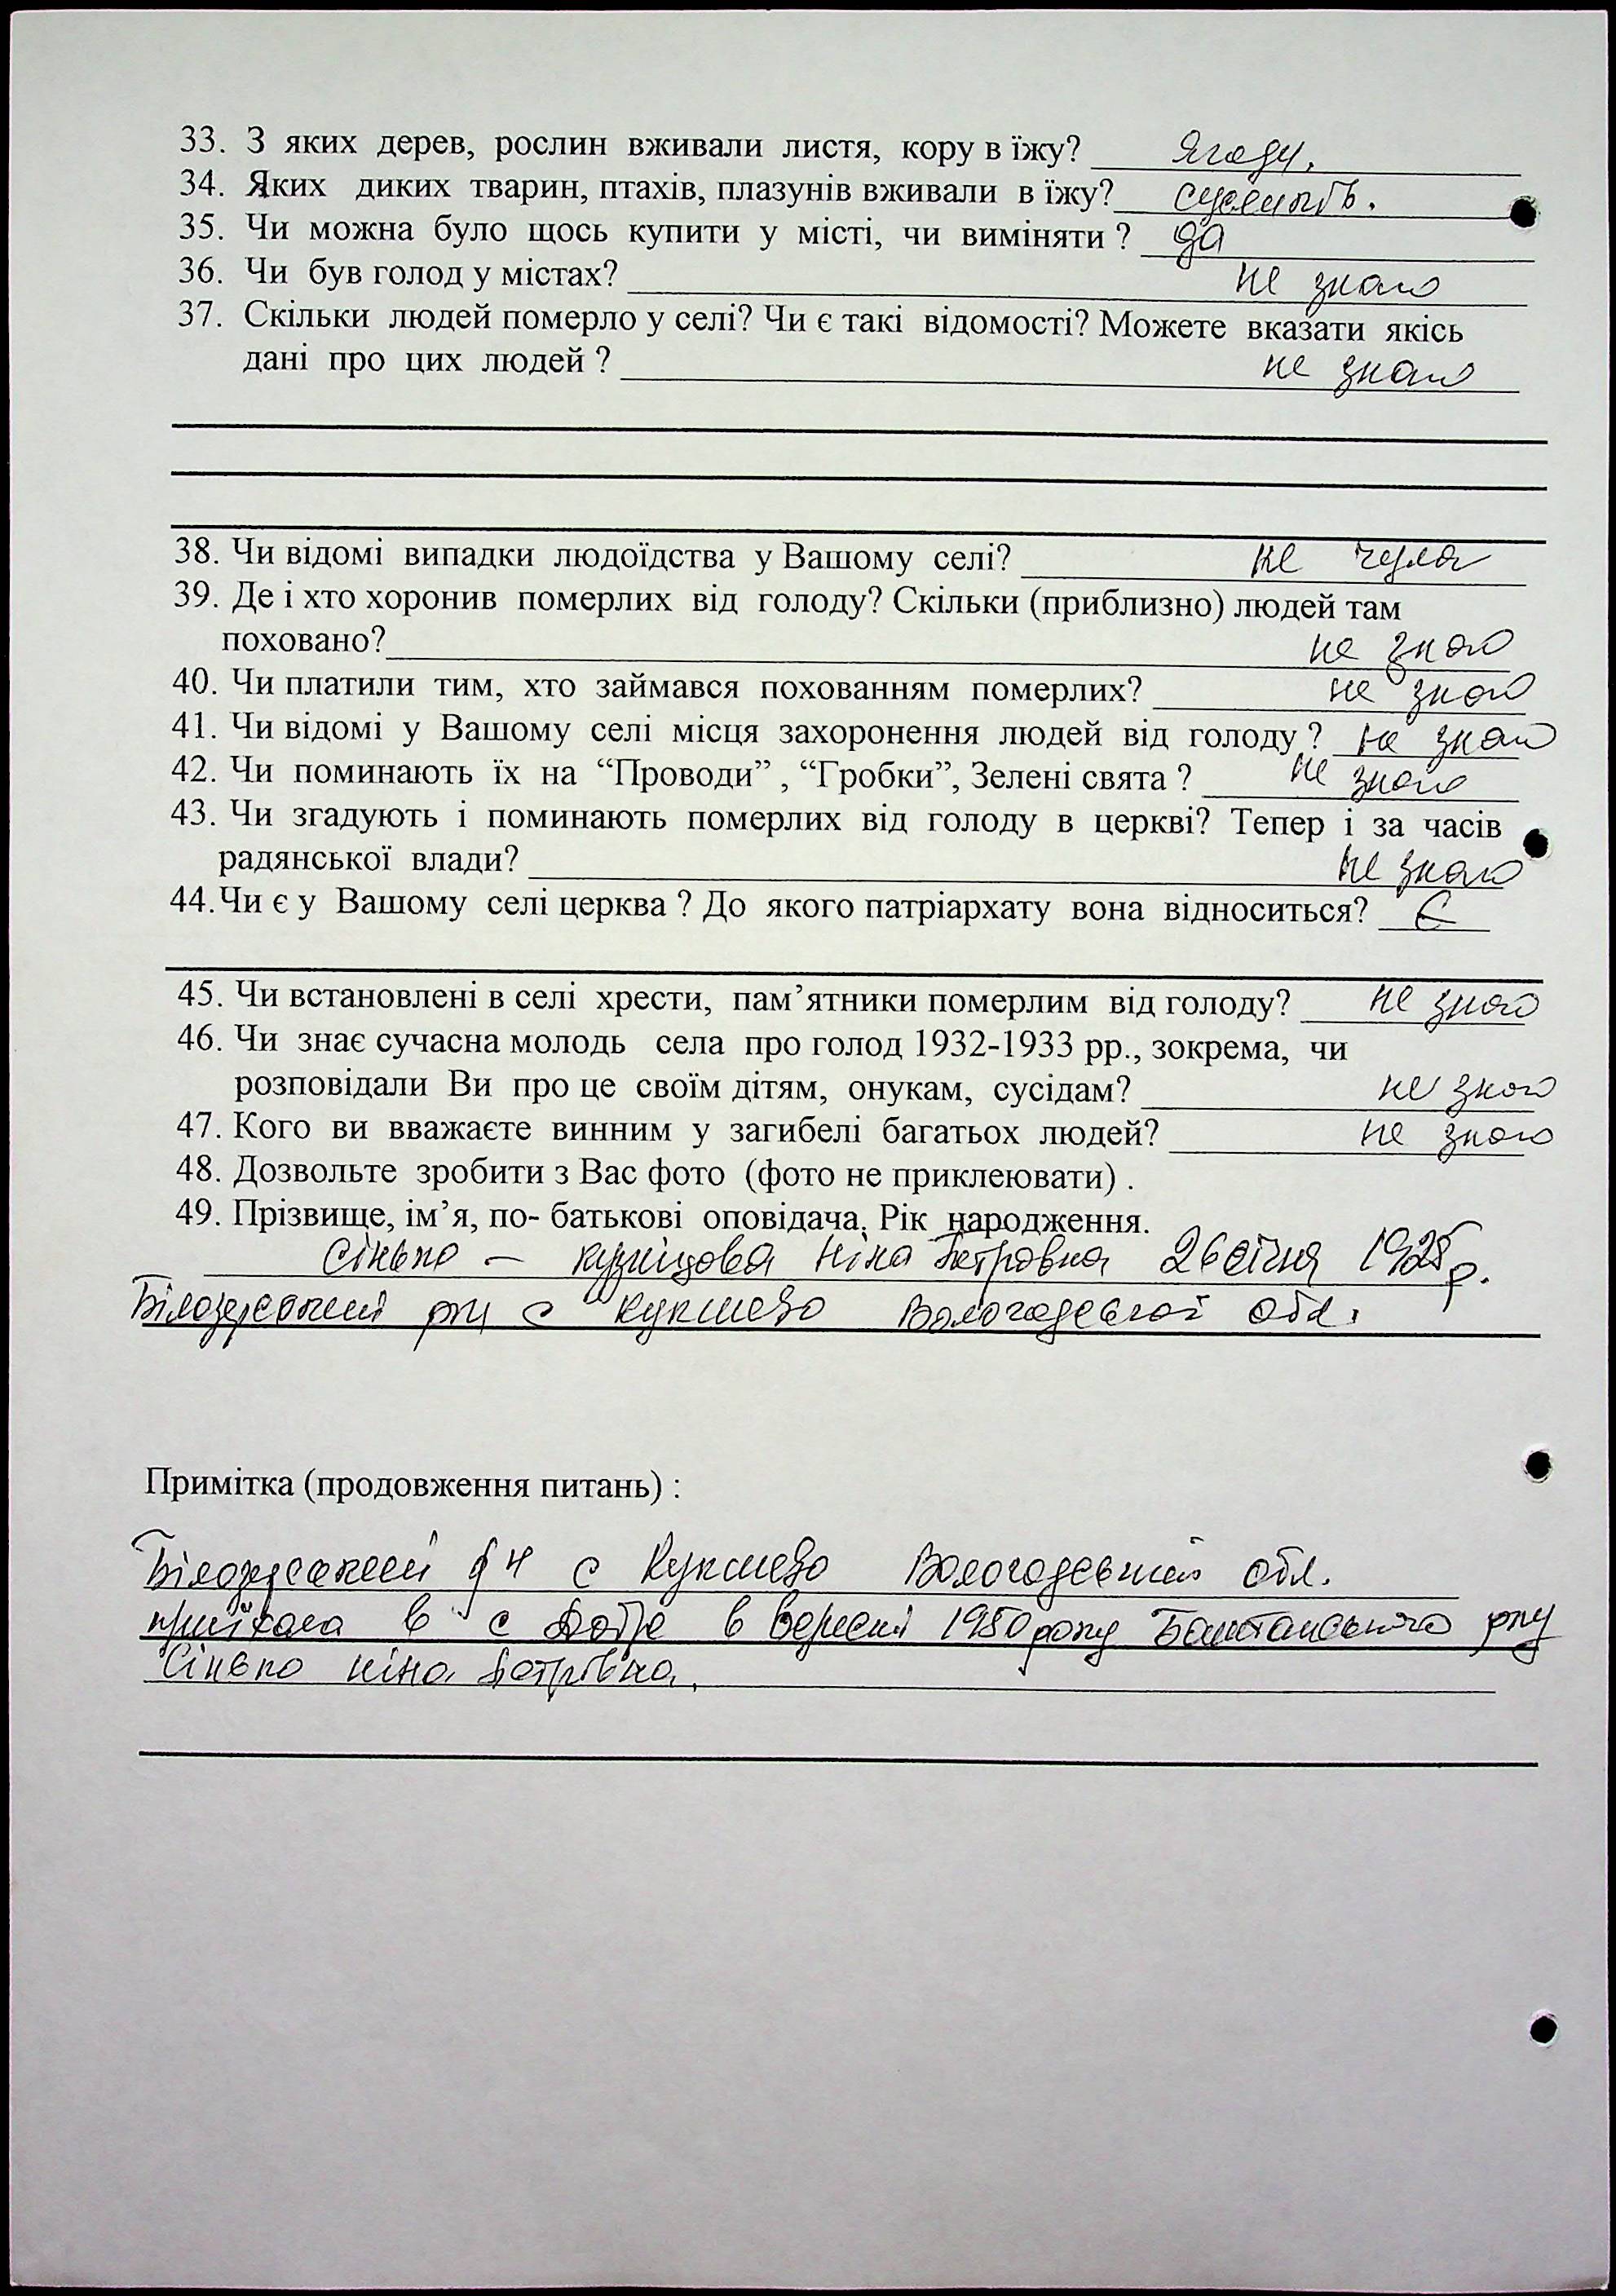 33. З яких дерев, рослин вживали листя, кору в їжу? Ягоду.
34. Яких диких тварин, птахів, плазунів вживали в їжу?
35. Чи можна було щось купити у місті, чи виміняти ? да
36. Чи був голод у містах? не знаю
37. Скільки людей померло у селі? Чи є такі відомості? Можете вказати якісь
дані про цих людей ? не знаю
38. Чи відомі випадки людоїдства у Вашому селі? не чула
39. Де і хто хоронив померлих від голоду? Скільки (приблизно) людей там
поховано? не знаю
40. Чи платили тим, хто займався похованням померлих? не знаю
41. Чи відомі у Вашому селі місця захоронення людей від голоду ? не знаю
42. Чи поминають їх на “Проводи” , “Гробки”, Зелені свята ? не знаю
43. Чи згадують і поминають померлих від голоду в церкві? Тепер і за часів
радянської влади? не знаю
44. Чи є у Вашому селі церква ? До якого патріархату вона відноситься? Є
45. Чи встановлені в селі хрести, пам’ятники померлим від голоду? не знаю
46. Чи знає сучасна молодь села про голод 1932-1933 рр., зокрема, чи
розповідали Ви про це своїм дітям, онукам, сусідам? не знаю
47. Кого ви вважаєте винним у загибелі багатьох людей? не знаю
48. Дозвольте зробити з Вас фото (фото не приклеювати) .
49. Прізвище, ім’я, по- батькові оповідача. Рік народження.
Сінько – Кузнецова Ніна Петровна 26 січня 1925 р.
с Кукшево Вологодской обл.
Примітка (продовження питань) :
с Кукшево обл.
приїхала в с Добре в вересні 1950 року Баштанського рну
Сінько Ніна Петрівна.